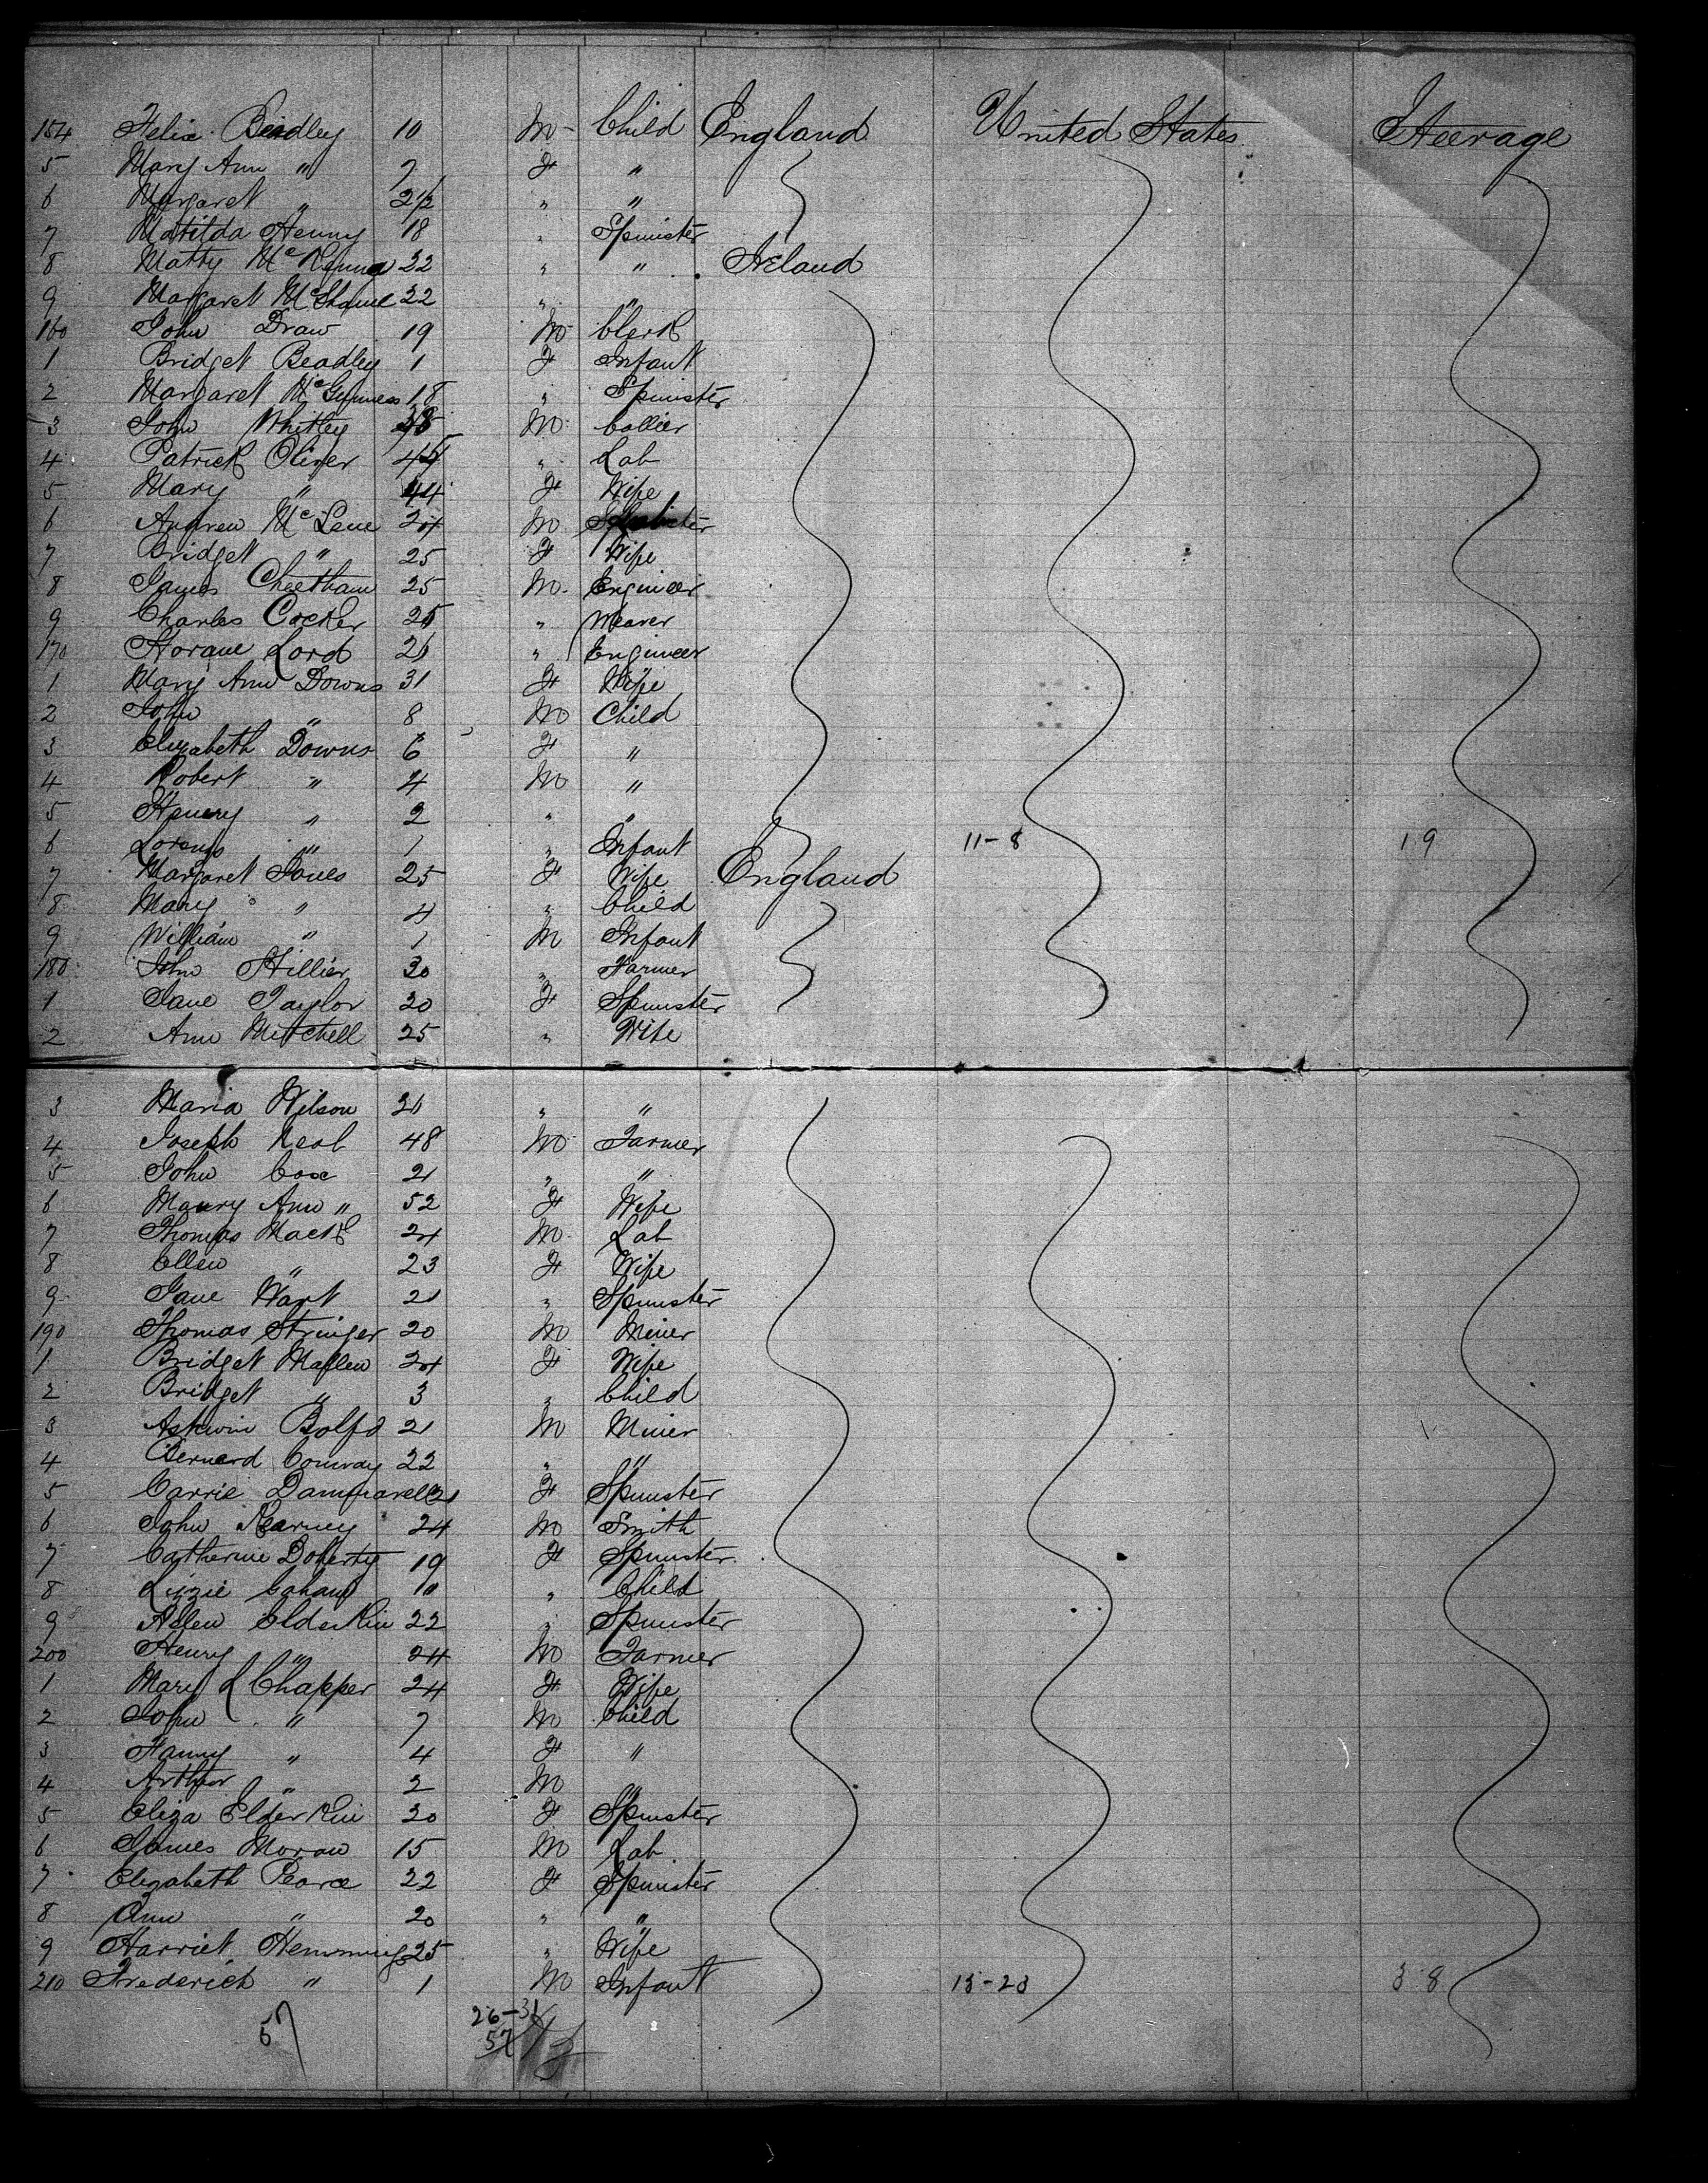 154 Felix Beadley 10 M Child England United States Steerage
5 Mary Ann " 7 F "
6 Margaret " 2 1/2 " "
7 Matilda Henny 18 " Spinster
8 Matty McKenna 22 " " Ireland
9 Margaret McShane 22 " "
160 John Draw 19 M Clerk
1 Bridget Beadley 1 F Infant
2 Margaret McGuiness 18 " Spinster
3 John Whitley M Collier
4 Patrick Oliver 45 " Lab
5 Mary " 44 F Wife
6 Andrew McLane 24 M
7 Bridget " 25 F Wife
8 James Cheetham 25 M Engineer
9 Charles Cocker 25 " Weaver
170 Horace Lord 21 " Engineer
1 Mary Ann Downs 31 F Wife
2 John " 8 M Child
3 Elizabeth Downs 6 F "
4 Robert " 4 M "
5 Henery " 2 " "
6 " 1 " Infant 11-8 19
7 Margaret Jones 25 F Wife England
8 Mary " 4 " Child
9 William " 1 M Infant
180 John Hillier 30 " Farmer
1 Jane Taylor 20 F Spinster
2 Ann Mitchell 25 " Wife
3 Maria Wilson 21 " "
4 Joseph Neal 48 M Farmer
5 John Cox 21 " "
6 Maury Ann " 52 F Wife
7 Thomas Mack 24 M Lab
8 Ellen " 23 F Wife
9 Jane Wart 21 " Spinster
190 Thomas Stringer 20 M Miner
1 Bridget Mallen 24 F Wife
2 Bridget " 3 " Child
3 Askwin 21 M Miner
4 Bernard Conway 22 " "
5 Carrie 21 F Spinster
6 John Kearney 24 M Smith
7 Catherine Doherty 19 F Spinster
8 Lizzie Cahan 10 " Child
9 Helen Elderkin 22 " Spinster
200 Henry " 24 M Farmer
1 Mary L Chapper 24 F Wife
2 John " 7 M Child
3 Fanny " 4 F "
4 Arthur " 2 M "
5 Eliza Elderkin 20 F Spinster
6 James Moran 15 M Lab
7 Elizabeth Pearce 22 F Spinster
8 Ann " 20 " "
9 Harriet Hemmings 25 " Wife
210 Frederick " 1 M Infant 15-23 38
57 26-31
57